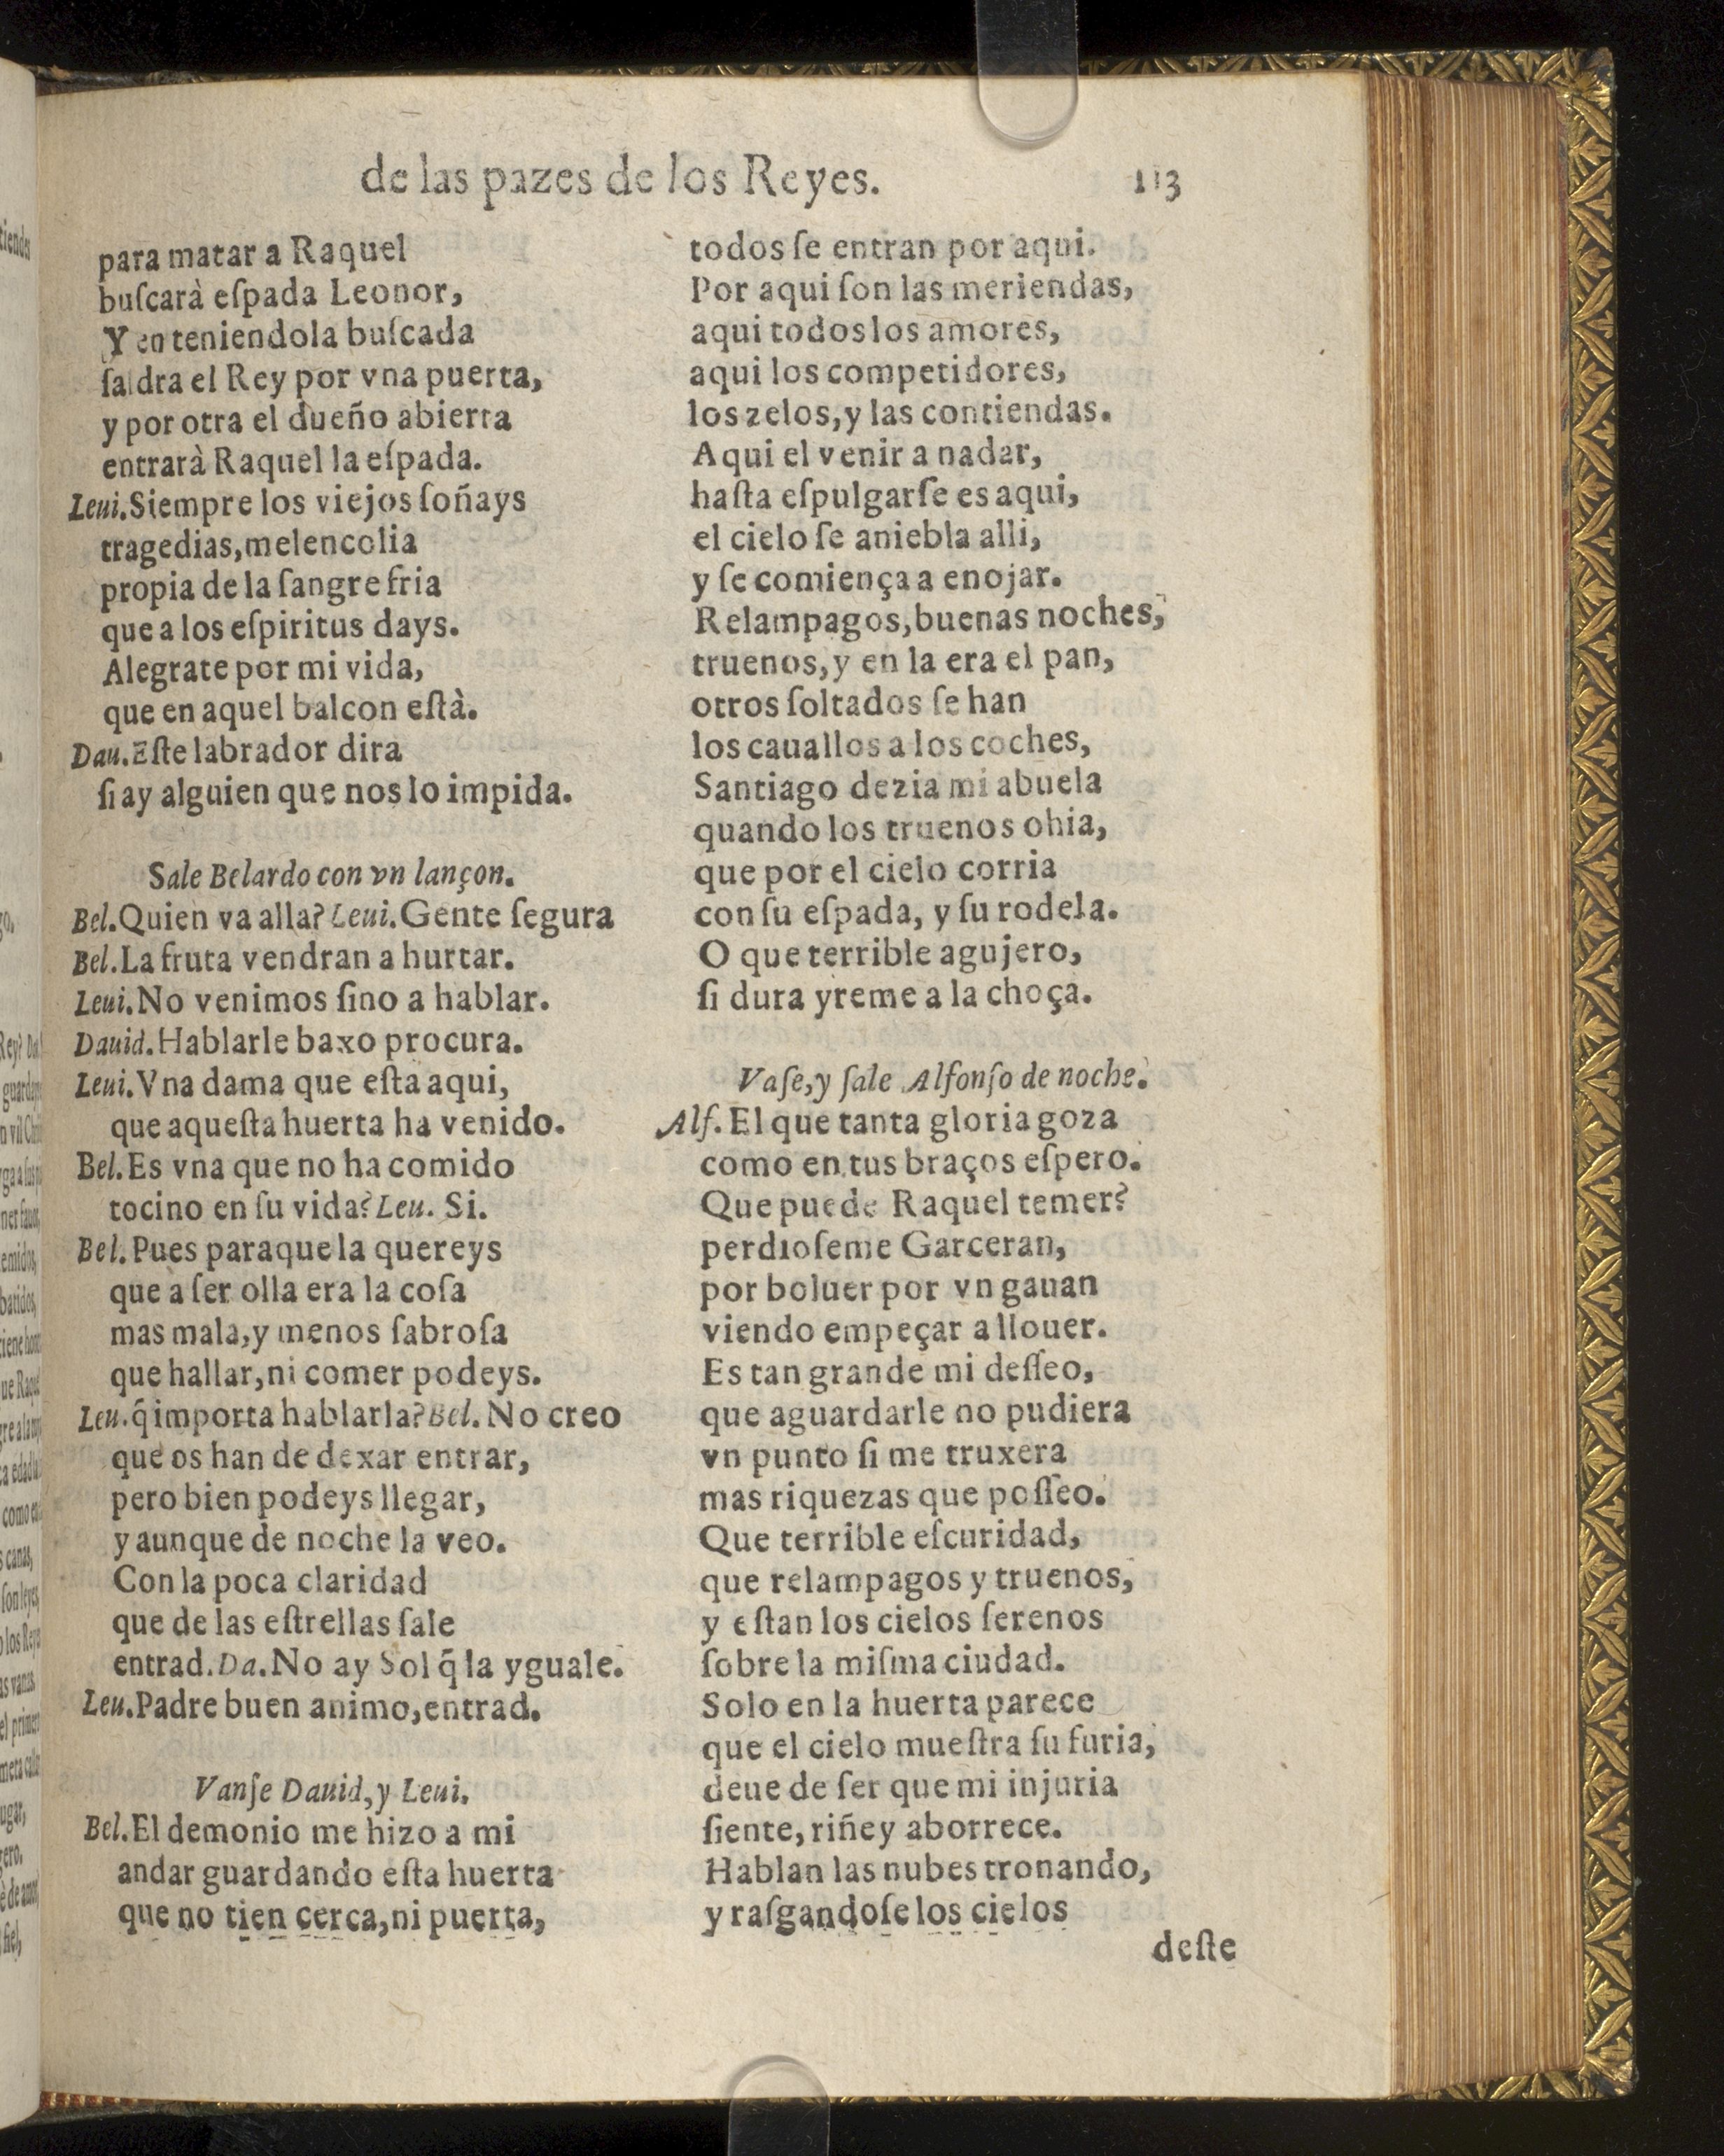 de las pazes de los Reyes. 113
para matar a Raquel
buſcarà eſpada Leonor,
Y en teniendola buſcada
ſaldra el Rey por vna puerta,
y por otra el dueño abierta
entrarà Raquel la eſpada.
Leui.Siempre los viejos ſoñays
tragedias,melencolia
propia de la ſangre fria
que a los eſpiritus days.
Alegrate por mi vida,
que en aquel balcon eſtà.
Dau.Eſte labrador dira
ſi ay alguien que nos lo impida.
Sale Belardo con vn lançon.
Bel.Quien va alla? Leui.Gente ſegura
Bel.La fruta vendran a hurtar.
Leui.No venimos ſino a hablar.
Dauid.Hablarle baxo procura.
Leui.Vna dama que eſta aqui,
que aqueſta huerta ha venido.
Bel.Es vna que no ha comido
tocino en ſu vida? Leu. Si.
Bel. Pues paraque la quereys
que a ſer olla era la coſa
mas mala,y menos ſabroſa
que hallar,ni comer podeys.
Leu.q̃ importa hablarla? Bel. No creo
que os han de dexar entrar,
pero bien podeys llegar,
y aunque de noche la veo.
Con la poca claridad
que de las eſtrellas ſale
entrad.Da.No ay Sol q̃ la yguale.
Leu.Padre buen animo,entrad.
Vanſe Dauid,y Leui.
Bel.El demonio me hizo a mi
andar guardando eſta huerta
que no tien cerca,ni puerta,
todos ſe entran por aqui.
Por aqui ſon las meriendas,
aqui todos los amores,
aqui los competidores,
los zelos,y las contiendas.
Aqui el venir a nadar,
haſta eſpulgarſe es aqui,
el cielo ſe aniebla alli,
y ſe comiença a enojar.
Relampagos,buenas noches,
truenos,y en la era el pan,
otros ſoltados ſe han
los cauallos a los coches,
Santiago dezia mi abuela
quando los truenos ohia,
que por el cielo corria
con ſu eſpada, y ſu rodela.
O que terrible agujero,
ſi dura yreme a la choça.
Vaſe,y ſale Alfonſo de noche.
Alf.El que tanta gloria goza
como en tus braços eſpero.
Que puede Raquel temer?
perdioſeme Garceran,
por boluer por vn gauan
viendo empeçar a llouer.
Es tan grande mi deſſeo,
que aguardarle no pudiera
vn punto ſi me truxera
mas riquezas que poſſeo.
Que terrible eſcuridad,
que relampagos y truenos,
y eſtan los cielos ſerenos
ſobre la miſma ciudad.
Solo en la huerta parece
que el cielo mueſtra ſu furia,
deue de ſer que mi injuria
ſiente, riñe y aborrece.
Hablan las nubes tronando,
y raſgandoſe los cielos
deſte